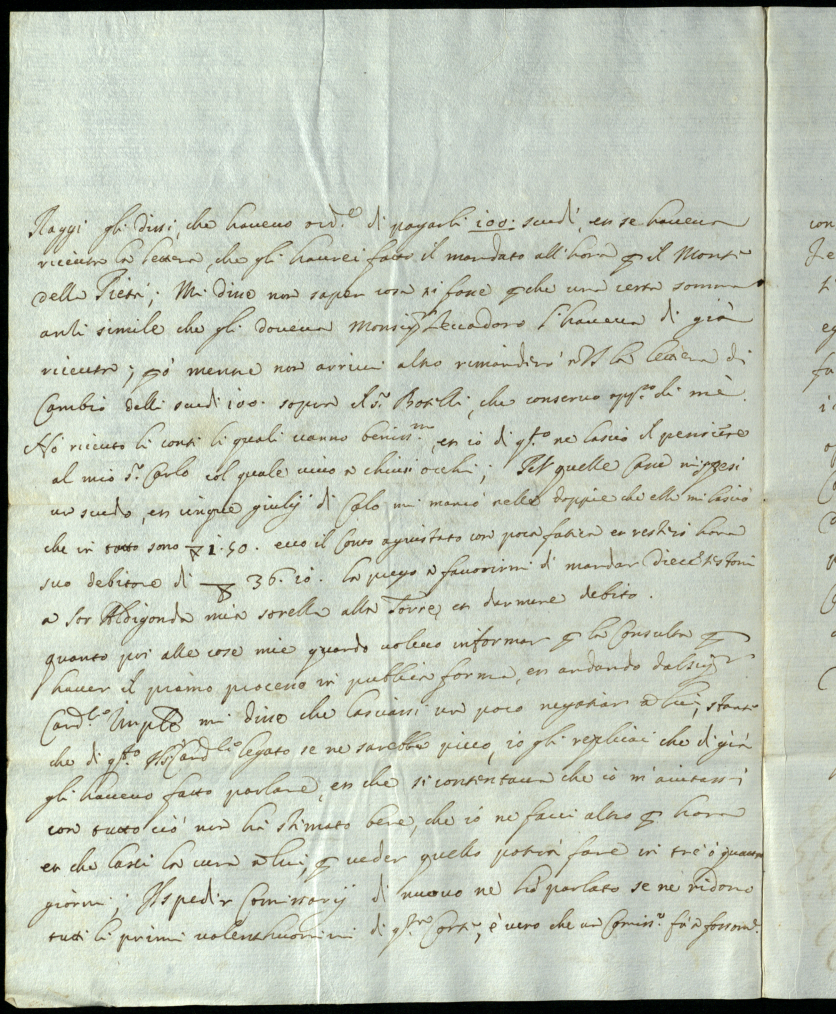 Raggi gli dissi, che havevo ord.e di pagarli 100: scudi, et se haveva
ricevuta la lettera, che gli haverei fatto il mandato all'hora p il Monte
della Pietà; Mi disse non saper cosa si fosse p che una certa somma
anti simile che gli doveva Monsig.r l'haveva di già
ricevuta; p ò mentre non arrivi altro rimanderò a VS la lettera di
Cambio delli scudi 100. sopra il S.r Botilli, che conservo app.o di mè.
Hò ricevuto li conti li quali vanno beniss.mo, et io di q.to ne lascio il pensiere
al mio S.r Carlo col quale vivo a chiusi occhi; quelle Casse
un scudo, et cinque giulij di Calo mi mancò nelle doppie che ella mi lasciò
che in tutto sono 1.50. ecco il Conto agiustato con poca fatica et resterò hora
suo debitore di 36.20. la prego a favorirmi di mandar Dieci testoni
a Sor Aldigonda mia sorella alla Torre, et darmene debito.
quanto poi alle cose mie quando volevo informar p la Consulta p
haver il primo processo in publica forma, et andando dal Sig.r
Card.le mi disse che lasciassi un poco negotiar a lui, stante
che di q.to Card.le legato se ne sarebbe picco, io gli replicai che di già
gli havevo fatto parlare, et che si contentava che io m'aiutassi
con tutto ciò non hà stimato bene, che io ne facci altro p hora
et che lasci la cura a lui, p veder quello potrà fare in trè ò quattro
giorni; Il spedir Comissarij di nuovo ne hò parlato se ne ridono
tutti li primi valenthuomini di q.ta Corte, è vero che un Comiss.o fà
con